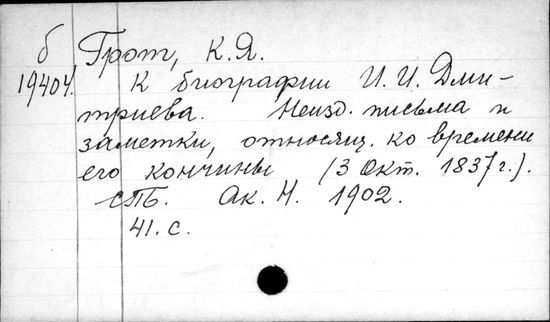 б Грот, К.Я.
19404. К биографии И.И. Дми-
триева. Неизд. письма и
заметки, относящ. ко времени
его кончины (3 Окт. 1837 г.).
СПБ. Ак. Н. 1902.
41. с.